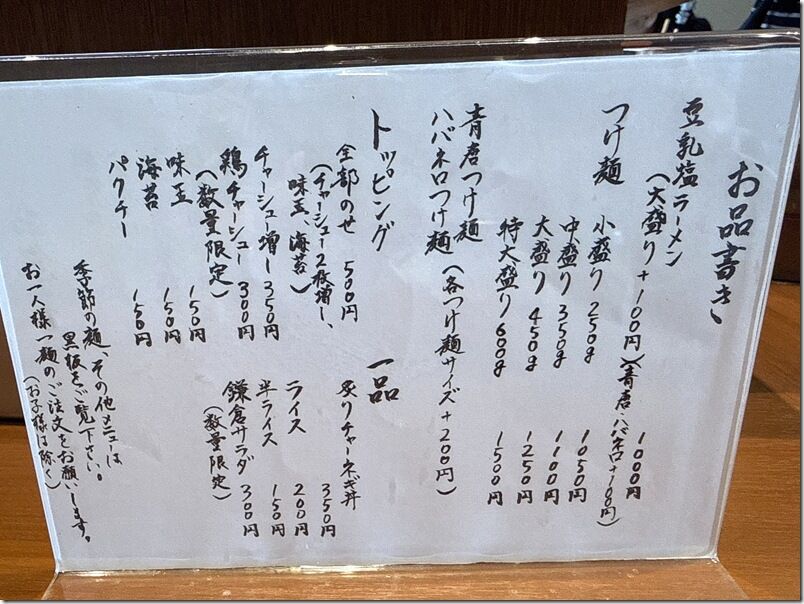 お品書き
豆乳塩ラーメン 1000円
(大盛り+100円)(青唐・ハバネロ+100円)
つけ麺 小盛り 250g 1050円
中盛り 350g 1100円
大盛り 450g 1250円
特大盛り 600g 1500円
青唐つけ麺
ハバネロつけ麺 (各つけ麺サイズ+200円)
トッピング
全部のせ 500円
(チャーシュー2枚増し、
味玉、海苔)
チャーシュー増し 350円
鶏チャーシュー 300円
(数量限定)
味玉 150円
海苔 150円
パクチー 150円
一品
炙りチャーネギ丼 350円
ライス 200円
半ライス 150円
鎌倉サラダ 300円
(数量限定)
季節の麺、その他メニューは
黒板をご覧下さい。
お一人様一麺のご注文をお願いします。
(お子様は除く)